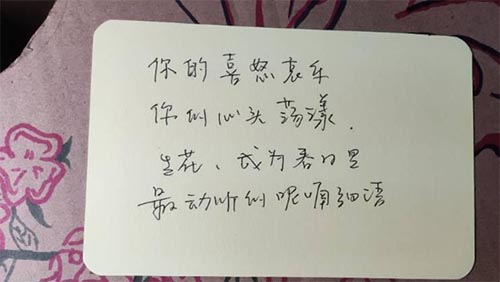 你的喜怒哀乐
你的心头荡漾.
生花、成为春日里
最动听的呢喃细语